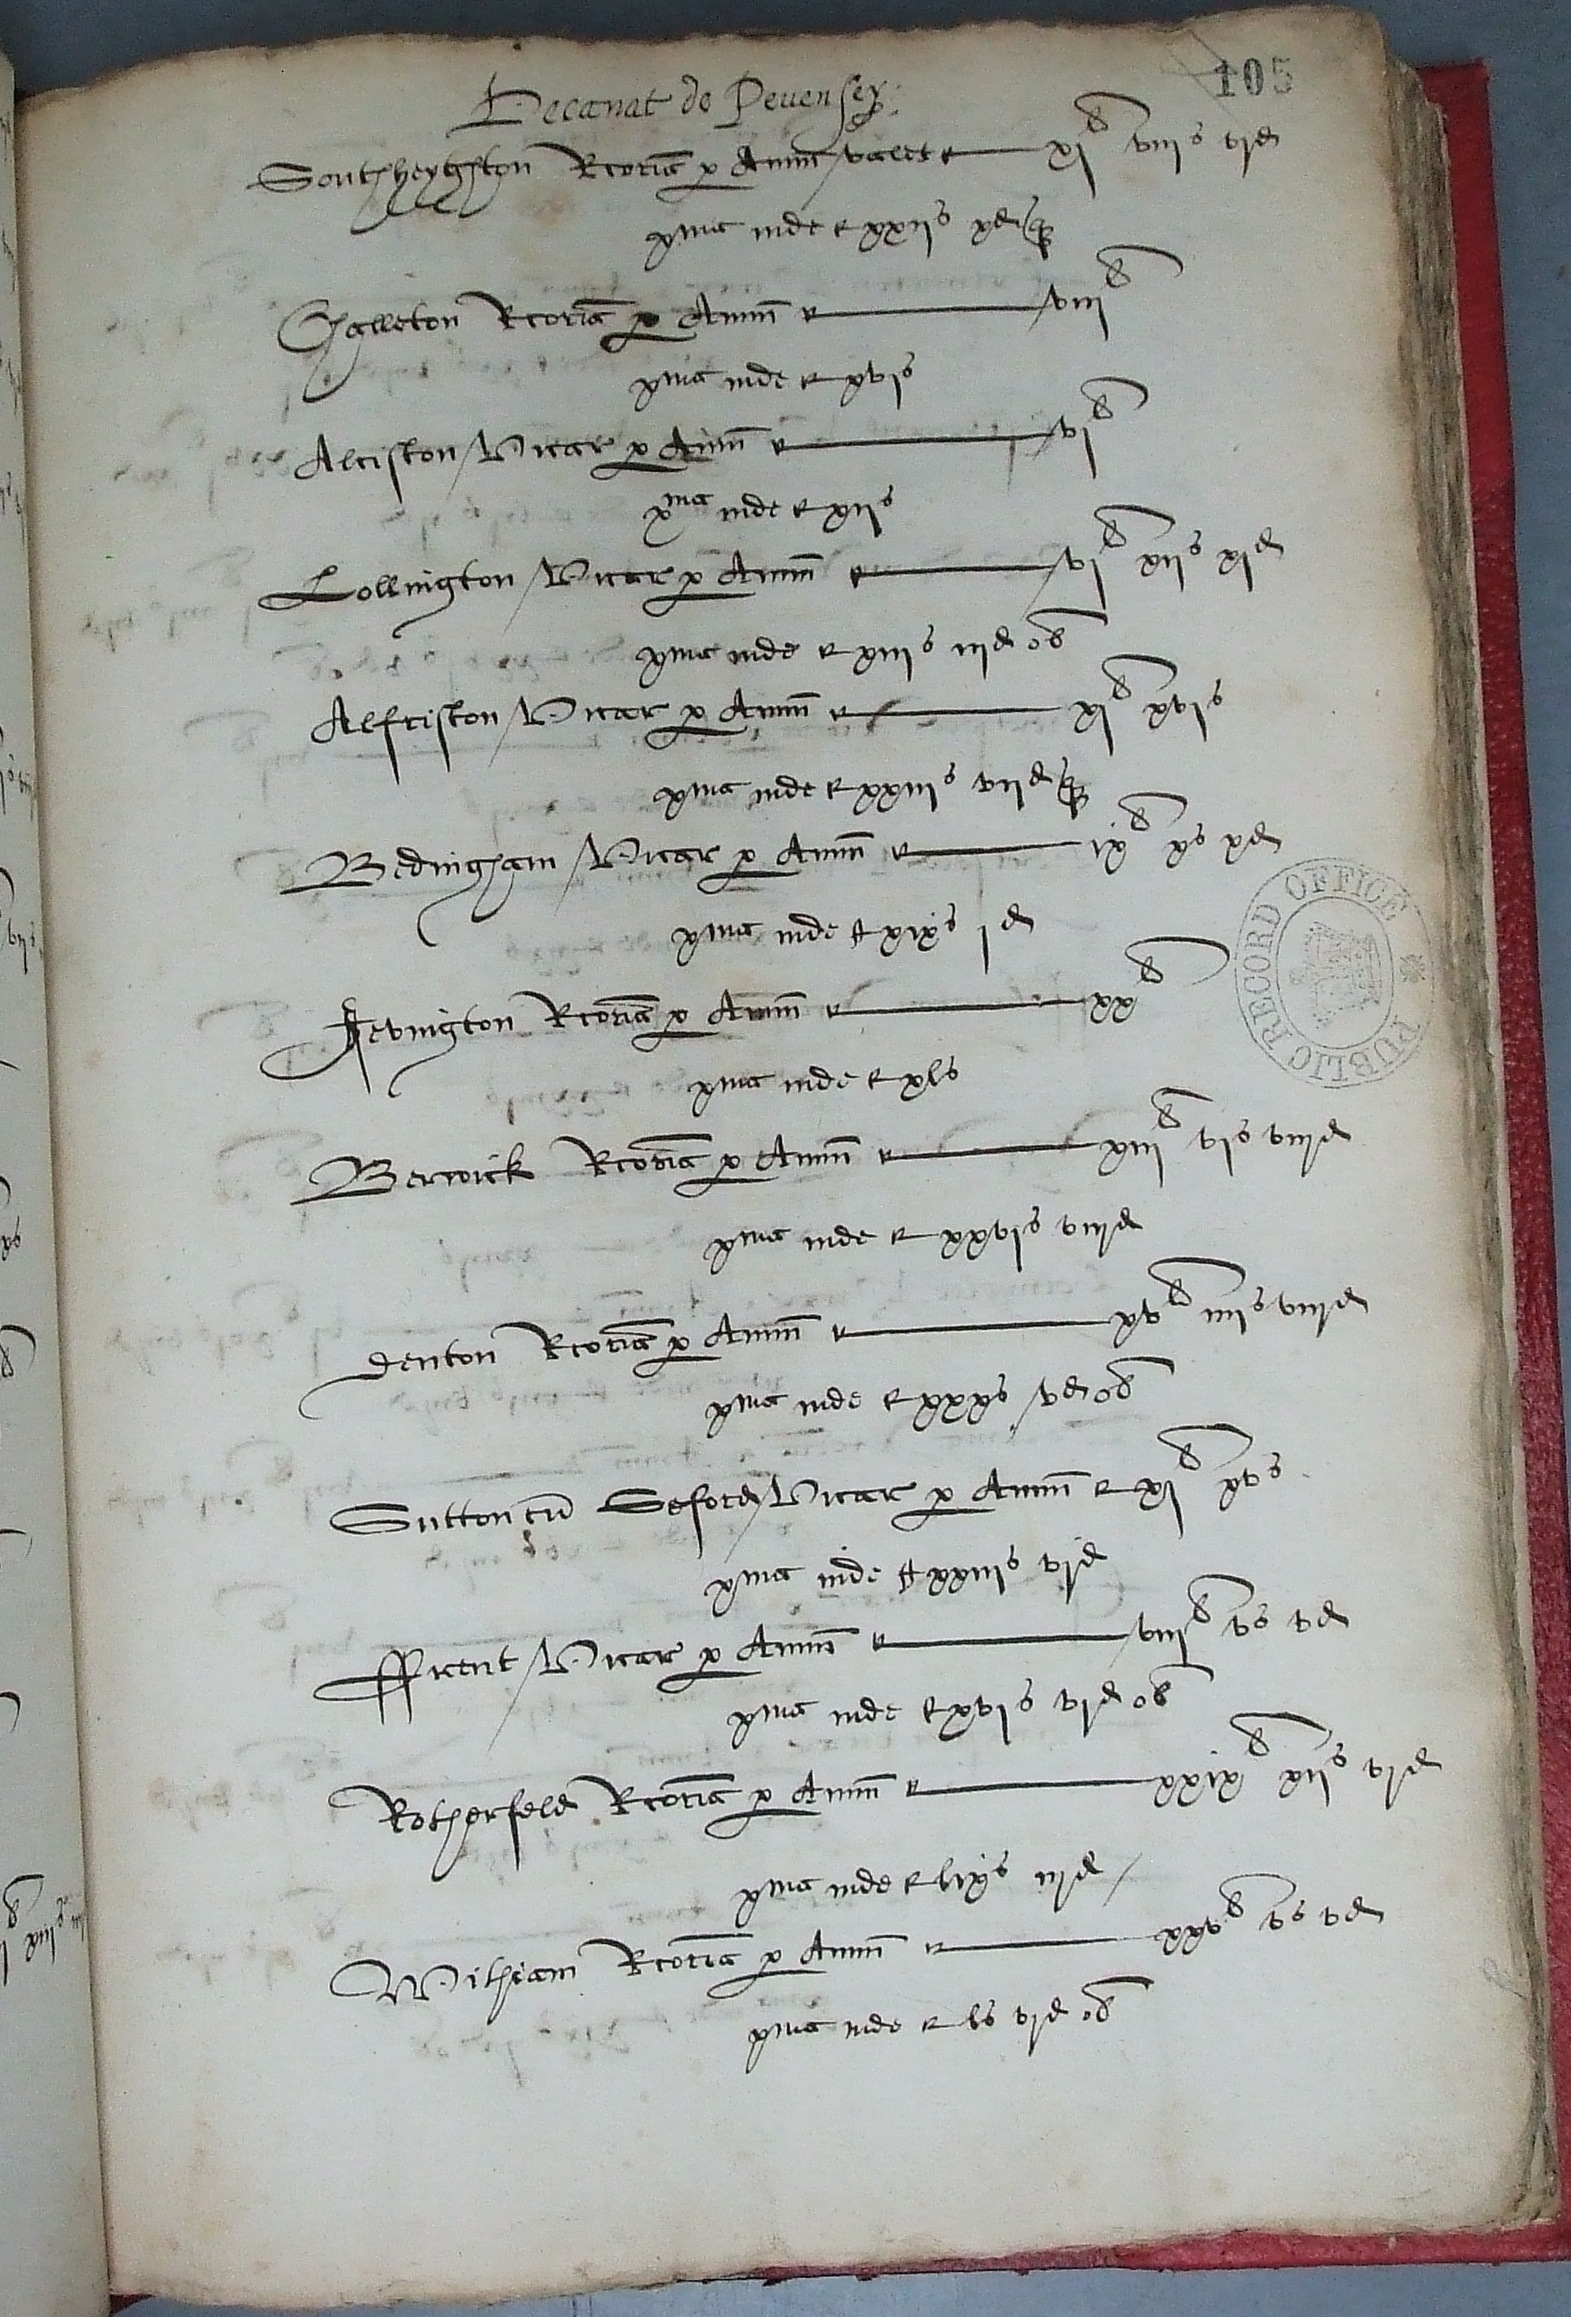 105
Decanat de Pevensey
Southeyghton Rcoria p Annu valet xjli viijs vjd
xma inde xxijs xd q
Challeton Rcoria p Annu viijli
xma inde xvjs
Alciston Vicar p Annu vjli
xma inde xijs
Lollington Vicar p Annu vjli xijs xjd
xma inde xiijs iijd ob
Alfriston Vicar p Annu xjli xvjs
xma inde xxiijs vijd q
Bedingham Vicar p Annu ixli xs xd
xma inde xixs jd
Jevington Rcoria p Annu xxli
xma inde xls
Berwick Rcoria p Annu xiijli vjs viijd
xma inde xxvjs viijd
Denton Rcoria p Annu xvli iiijs viijd
xma inde xxxs vd ob
Sutton cu Seford Vicar p Annu xjli xvs
xma inde xxiijs vjd
ffrent Vicar p Annu viijli vs vd
xma inde xvjs vjd ob
Rotherfeld Rcoria p Annu xxixli xijs vjd
xma inde lixs iijd
Withiam Rcoria p Annu xxvli vs vd
xma inde ls vjd ob
PUBLIC RECORD OFFICE